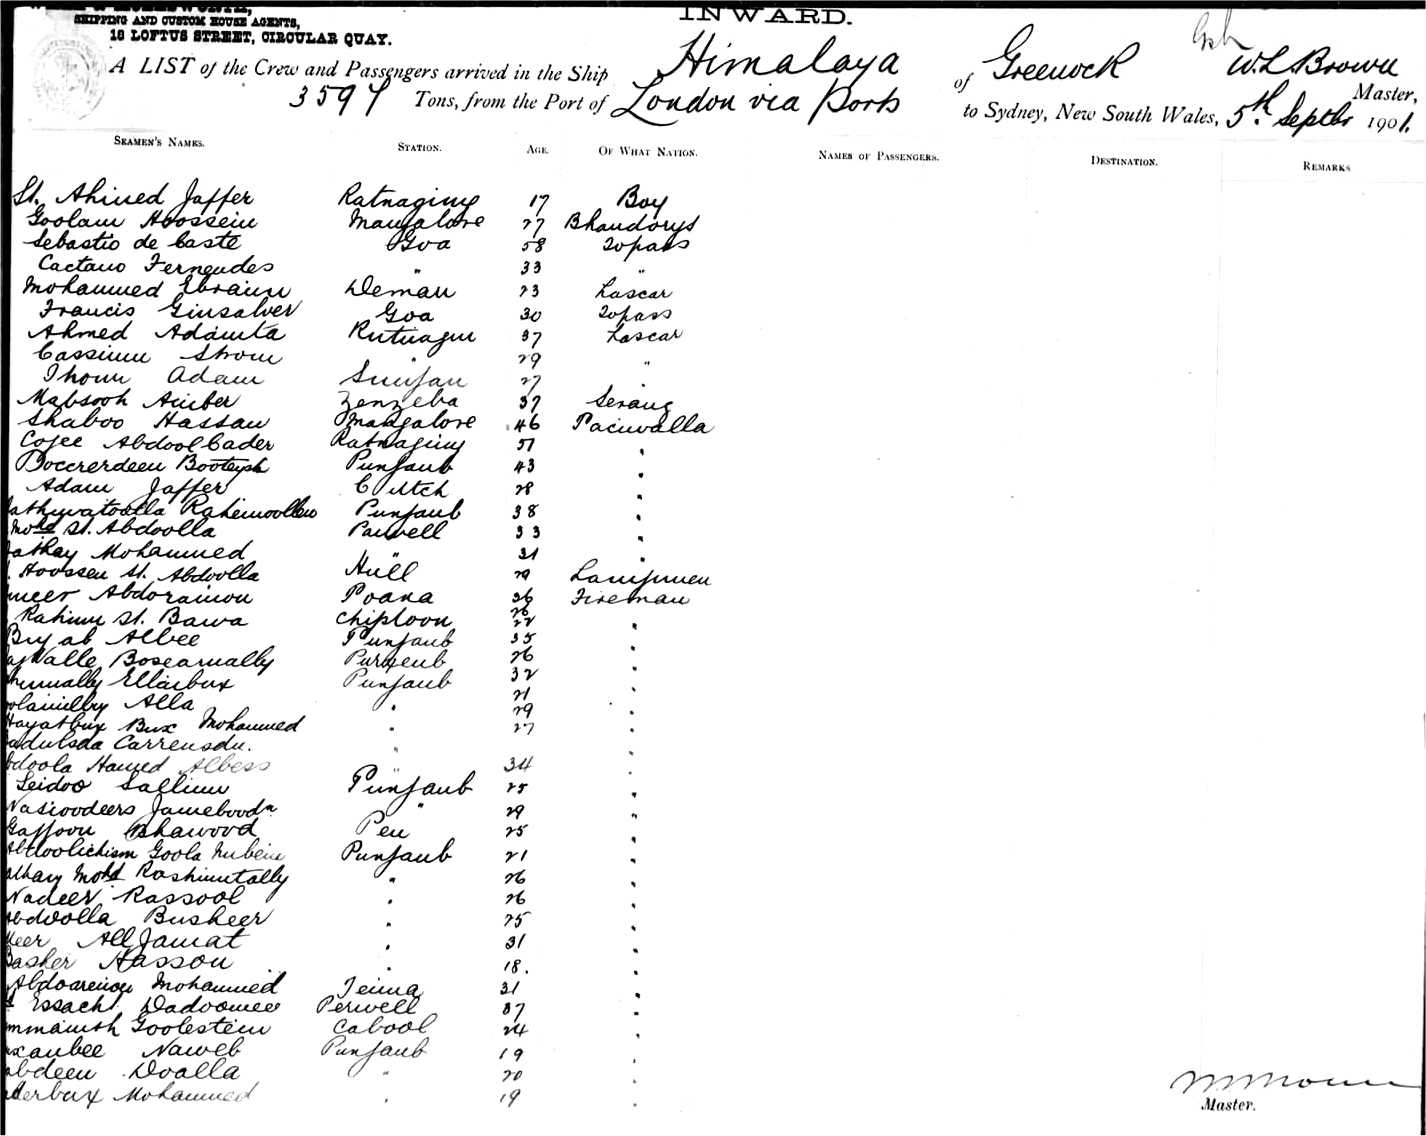 SHIPPING AND CUSTOM HOUSE AGENTS,
18 LOFTUS STREET, CIRCULAR QUAY.
INWARD.
A LIST of the Crew and Passengers arrived in the Ship Himalaya of Greenock W.L. Brown Master,
3597 Tons, from the Port of London via Ports to Sydney, New South Wales, 5th Septbr 1901.
SEAMEN'S NAMES. STATION. AGE. OF WHAT NATION. NAMES OF PASSENGERS. DESTINATION. REMARKS
St. Ahmed Jaffer Ratnaginy 17 Boy
Goolam Hoossein Mangalore 27 Bhandorys
Sebastio de Caste Goa 58 Topass
Caetano Fernendes " 33 "
Mohammed Ebraim Deman 23 Lascar
Francis Ginsalver Goa 30 Topass
Ahmed Adamta Rutnagin 37 Lascar
Cassimm " 29 "
Thom Adam 27 "
Mabsooh Amber Zenzeba 37 Serang
Shaboo Hassan Mangalore 46 Paniwalla
Cojee Abdool Cader Ratnaginy 51 "
Booteysh Punjaub 43 "
Adam Jaffer Cutch 28 "
Rahimoollen Punjaub 38 "
Mohd St. Abdoolla Panvell 33 "
Mohammed " 31 "
Hoossen St. Abdoolla Hull 29 Lampmen
Abdoraimon Poana 36 Fireman
Rahim St. Bawa Chiploon "
Albee Punjaub 35 "
Walle Boseamally 26 "
Ellaibux Punjaub 32 "
Alla " 21 "
Hayatbux Bux Mohammed " 29 "
Carrensdn. " 27 "
Hamed Albess 34 "
Seidoo Sallim Punjaub 25 "
" 29 "
Gaffoor Pen 25 "
Goola Punjaub 21 "
Mohd Rashimtally " 26 "
Nadeer Rassool " 26 "
Abdoolla Busheer " 25 "
Meer All Jamat " 31 "
Basher Hasson " 18. "
Mohammed 31 "
Essack Dadoomee Perwell 37 "
Goolestein Cabool 24 "
Naweb Punjaub 19 "
Abdeen Doalla " 20 "
Mohammed " 19 "
Master.